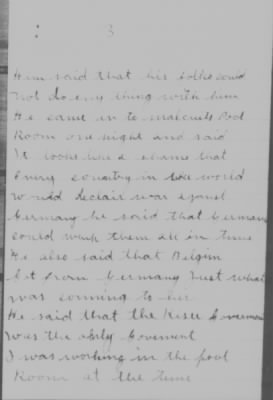 3
Him said that his folks could
not do eny thing with him
He came in to malcuits Pool
Room one night and said
It looks like a shame that
Every country in the world
would declair war against
Germany he said that Germany
could whip them all in time
He also said that Belgim
Got from Germany Just what
was comming to her
He said that the Kiser Goverment
Was the only Goverment
I was working in the pool
Room at the time